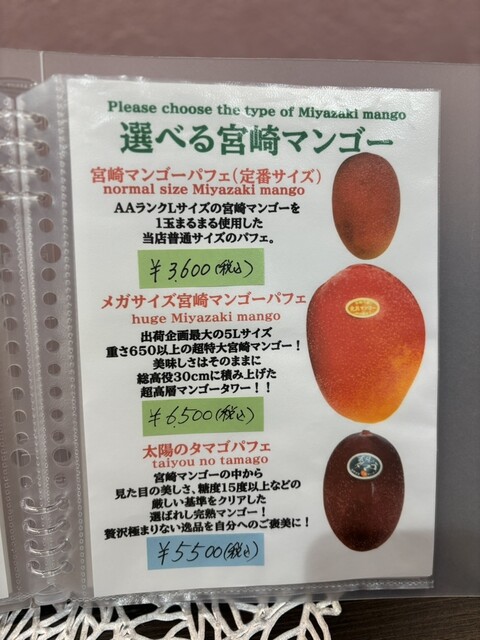 Please choose the type of Miyazaki mango
選べる宮崎マンゴー
宮崎マンゴーパフェ(定番サイズ)
normal size Miyazaki mango
AAランクLサイズの宮崎マンゴーを
1玉まるまる使用した
当店普通サイズのパフェ。
¥3,600(税込)
メガサイズ宮崎マンゴーパフェ
huge Miyazaki mango
出荷企画最大の5Lサイズ
重さ650以上の超特大宮崎マンゴー!
美味しさはそのままに
総高役30cmに積み上げた
超高層マンゴータワー!!
¥6,500(税込)
太陽のタマゴパフェ
taiyou no tamago
宮崎マンゴーの中から
見た目の美しさ、糖度15度以上などの
厳しい基準をクリアした
選ばれし完熟マンゴー!
贅沢極まりない逸品を自分へのご褒美に!
¥5500(税込)